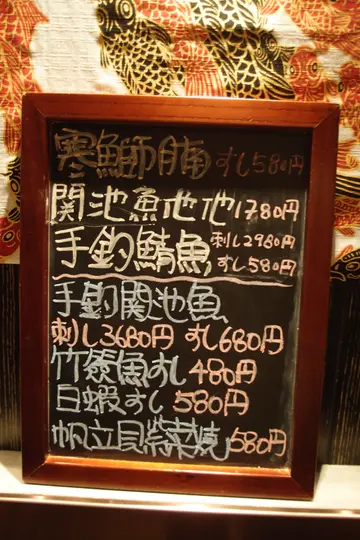 寒鰤腩すし580円
関池魚池池1780円
手釣鯖魚 刺し2980円
すし580円
手釣関池魚
刺し3680円 すし680円
竹筴魚すし480円
白蝦すし580円
帆立貝紫菜焼580円